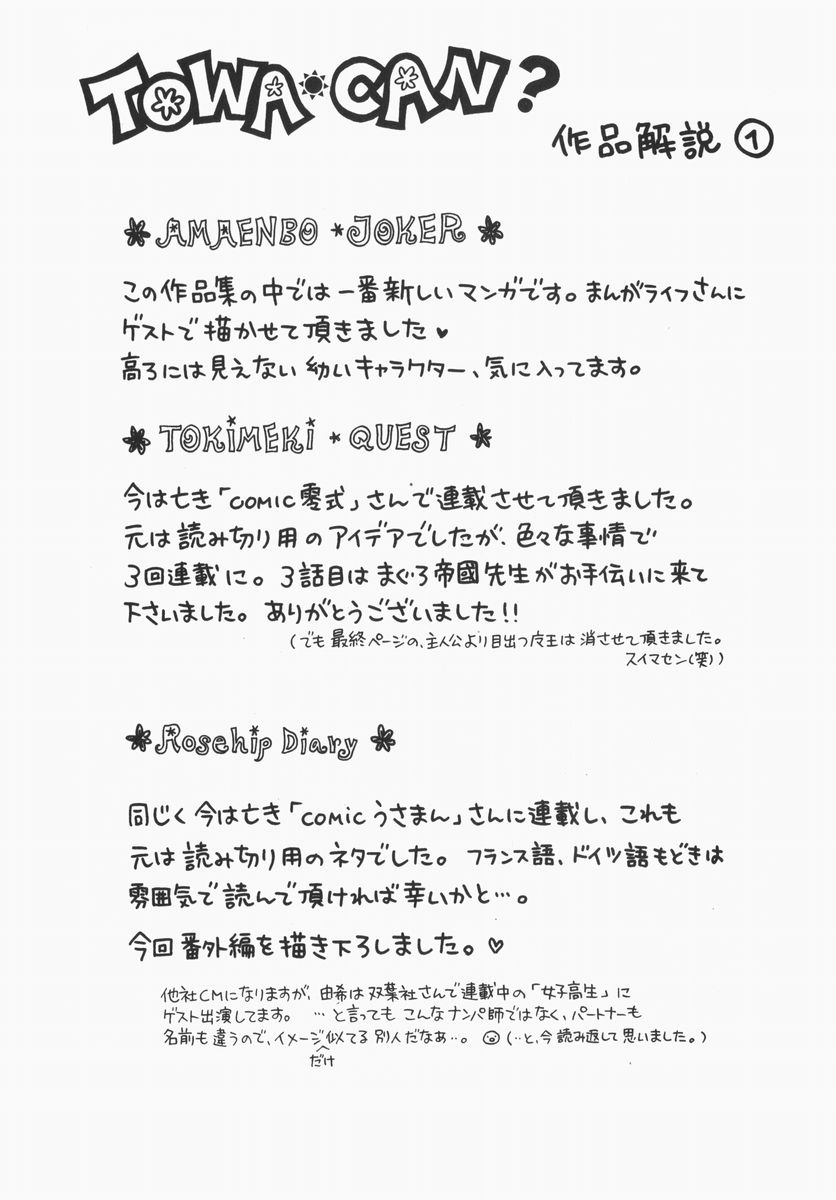 TOWA CAN?
作品解説 ①
AMAENBO JOKER
この作品集の中では一番新しいマンガです。まんがライフさんに
ゲストで描かせて頂きました♥
高ろには見えない幼いキャラクター、気に入ってます。
TOKiMEKi QUEST
今は亡き「COMIC零式」さんで連載させて頂きました。
元は読み切り用のアイデアでしたが、色々な事情で
3回連載に。3話目はまぐろ帝國先生がお手伝いに来て
下さいました。ありがとうございました!!
(でも最終ページの、主人公より目出つ皮王は消させて頂きました。
スイマセン(笑))
Rosehip Diary
同じく今は亡き「comicうさまん」さんに連載し、これも
元は読み切り用のネタでした。フランス語、ドイツ語もどきは
雰囲気で読んで頂ければ幸いかと…。
今回番外編を描き下ろしました。♡
他社CMになりますが、由希は双葉社さんで連載中の「女子高生」に
ゲスト出演してます。 …と言ってもこんなナンパ師ではなく、パートナーも
名前も違うので、イメージだけ似てる別人だなぁ…。(…と、今読み返して思いました。)